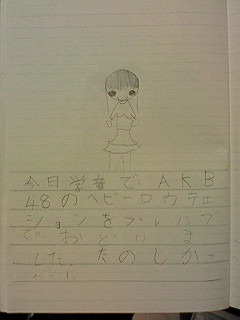 今日学童でAKB
48のヘビーロウテェ
ションをプレハブ
でおどりま
した。たのしかっ